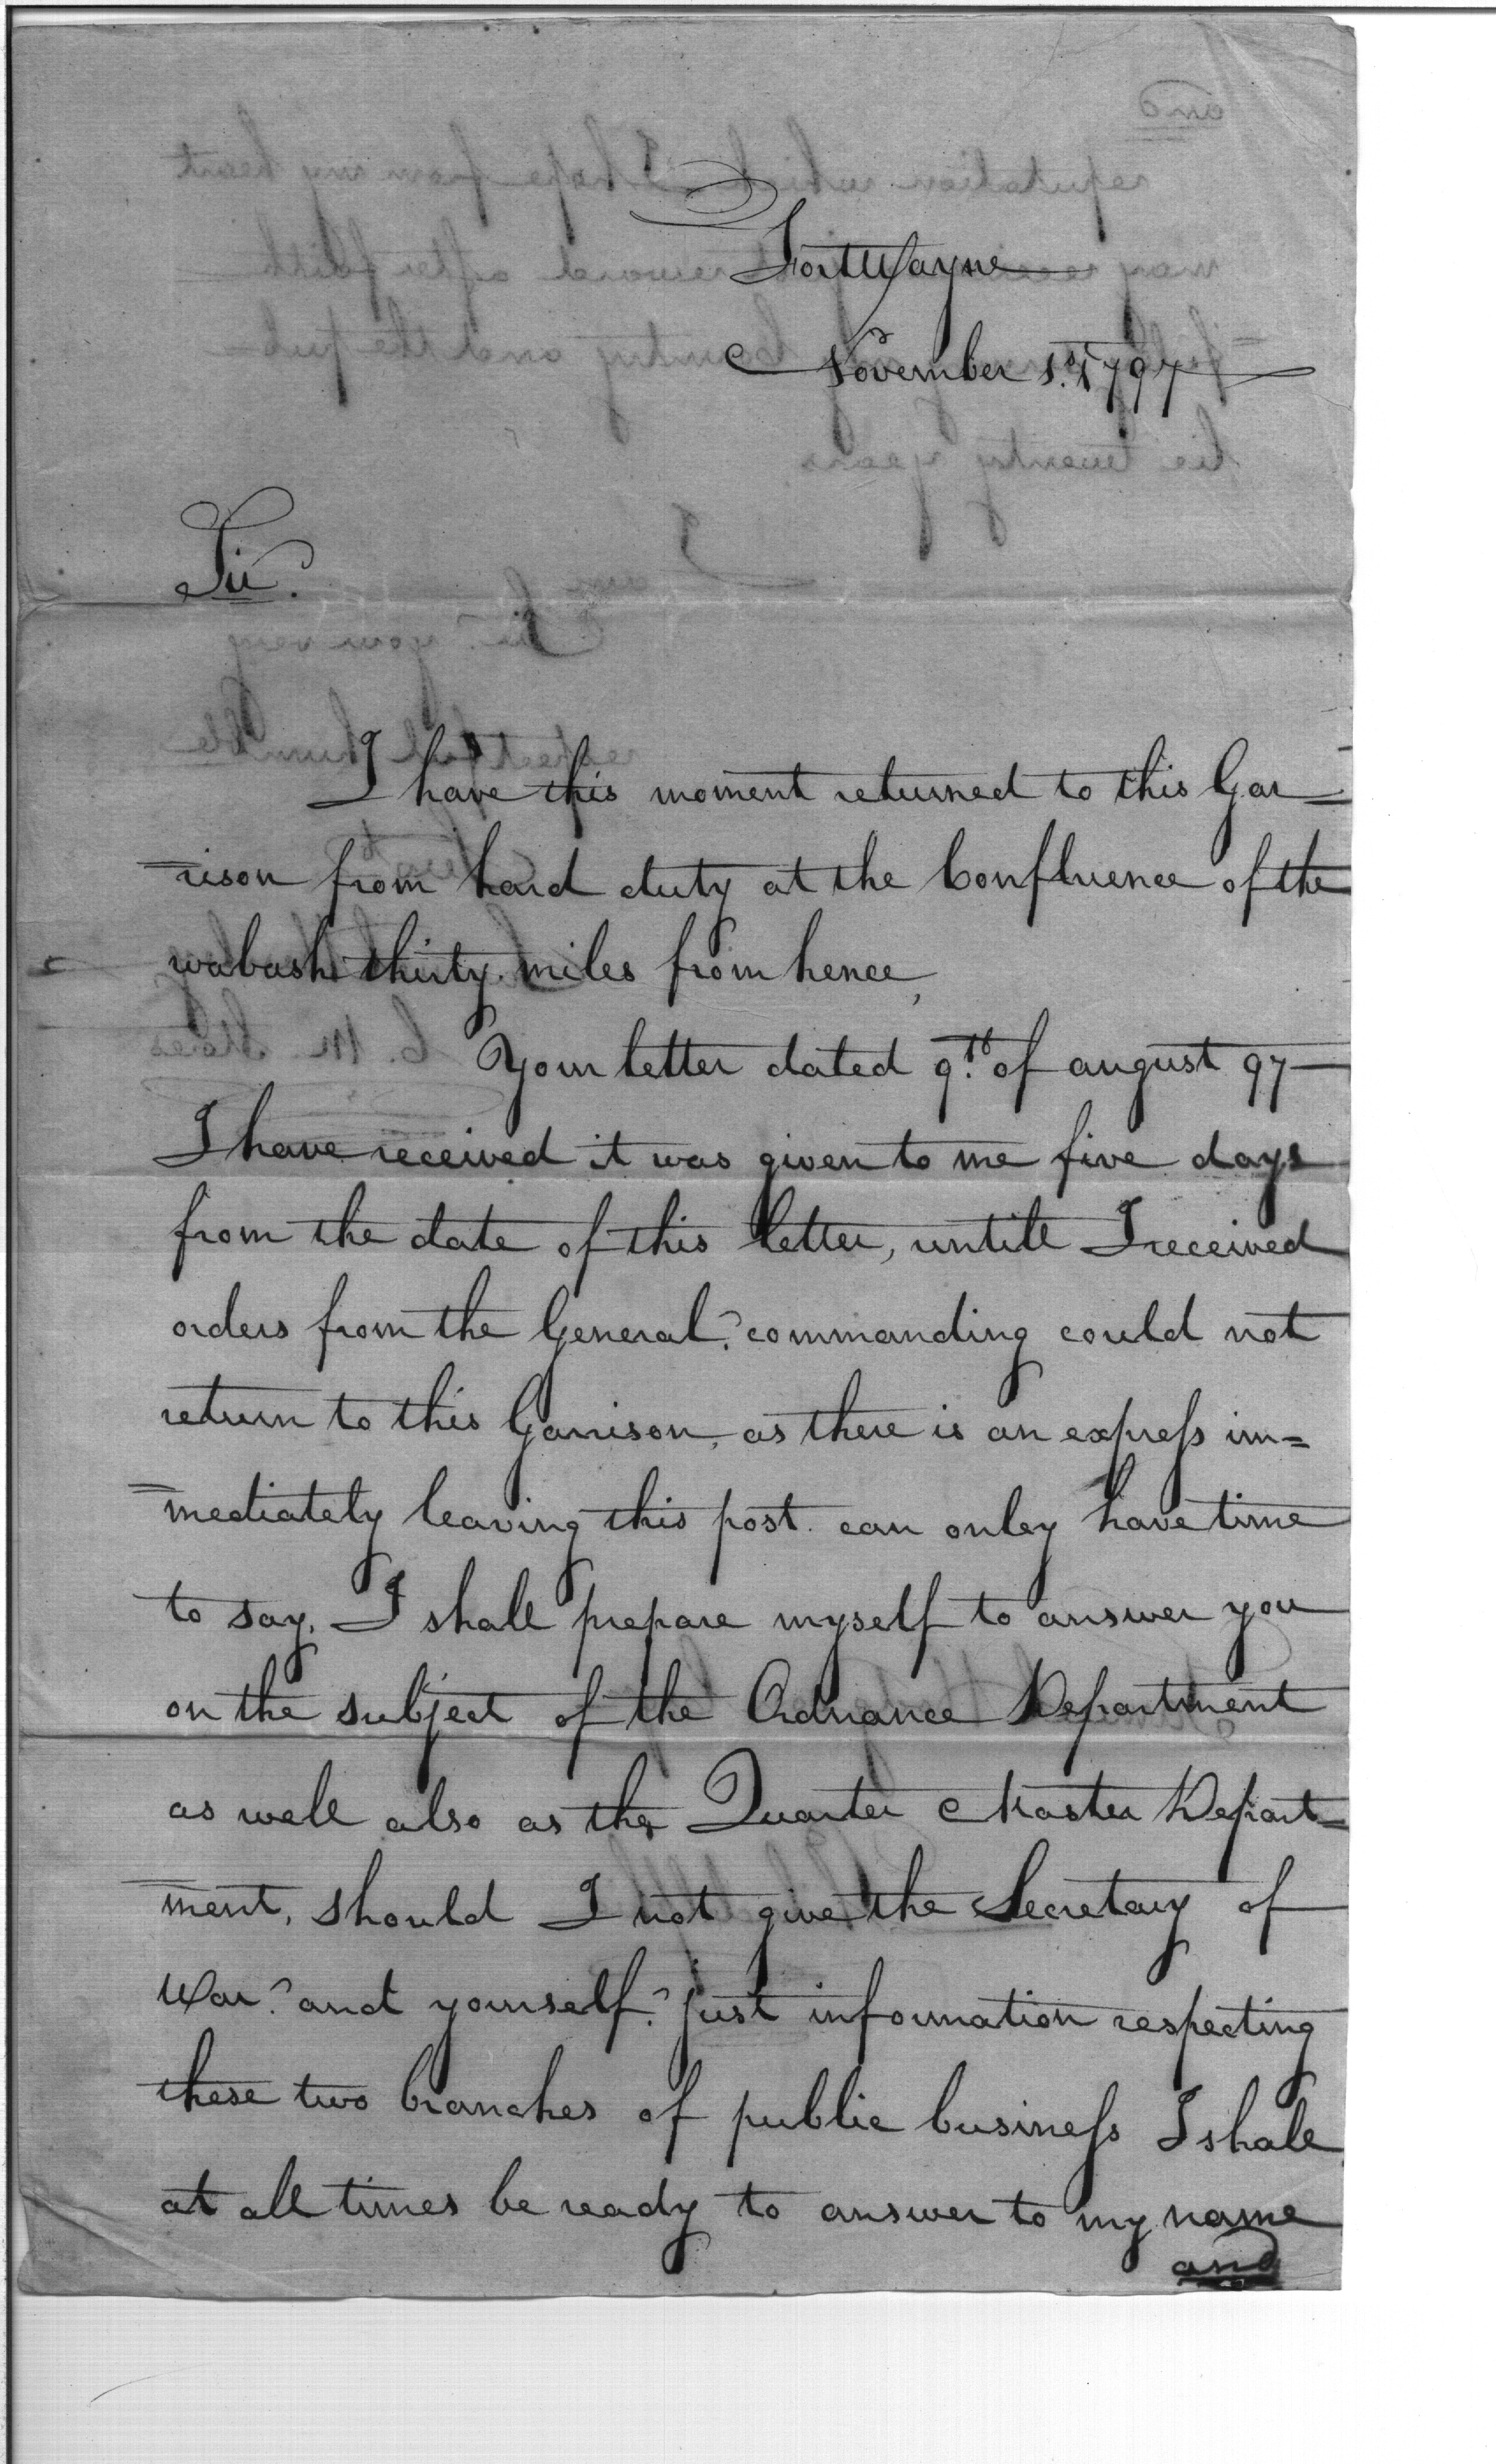 Fort Wayne
November 1.st 1797
Sir.
I have this moment returned to this Gar=
=rison from hard duty at the Confluence of the
wabash thirty miles from hence,
Your letter dated 9.th of august 97
I have received it was given to me five days
from the date of this letter, untill I received
orders from the General. commanding could not
return to this Garrison, as there is an express im=
=mediately leaving this post. can onley have time
to say, I shall prepare myself to answer you
on the subject of the Ordnance Department
as well also as the Quarter Master Depart=
ment, should I not give the Secretary of
War. and yourself. just information respecting
these two branches of public business I shall
at all times be ready to answer to my name
and